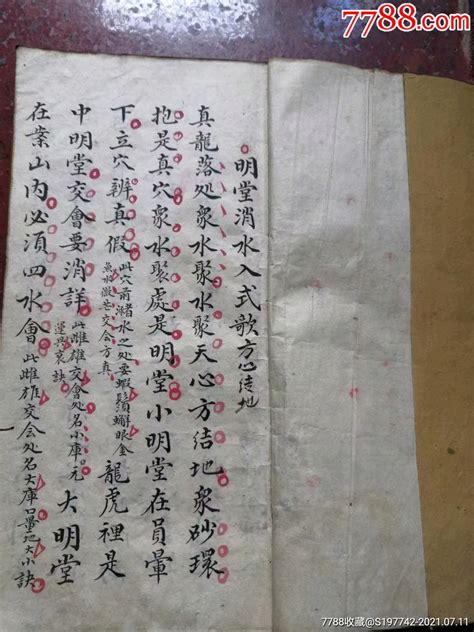 7788.com
明堂消水入式歌 方心结地
真龍落处衆水聚水聚天心方结地衆砂環
抱是真穴衆水聚處是明堂小明堂在員暈
下立穴辨真假 此穴前潴水之处要蝦鬚蟹眼金
魚水微茫交会方真 龍虎裡是
中明堂交會要消詳 此雌雄交會处名小庫元
運興衰訣 大明堂
在案山内必須四水會 此雌雄交会处名大庫口量地大小訣
7788收藏@S197742-2021.07.11